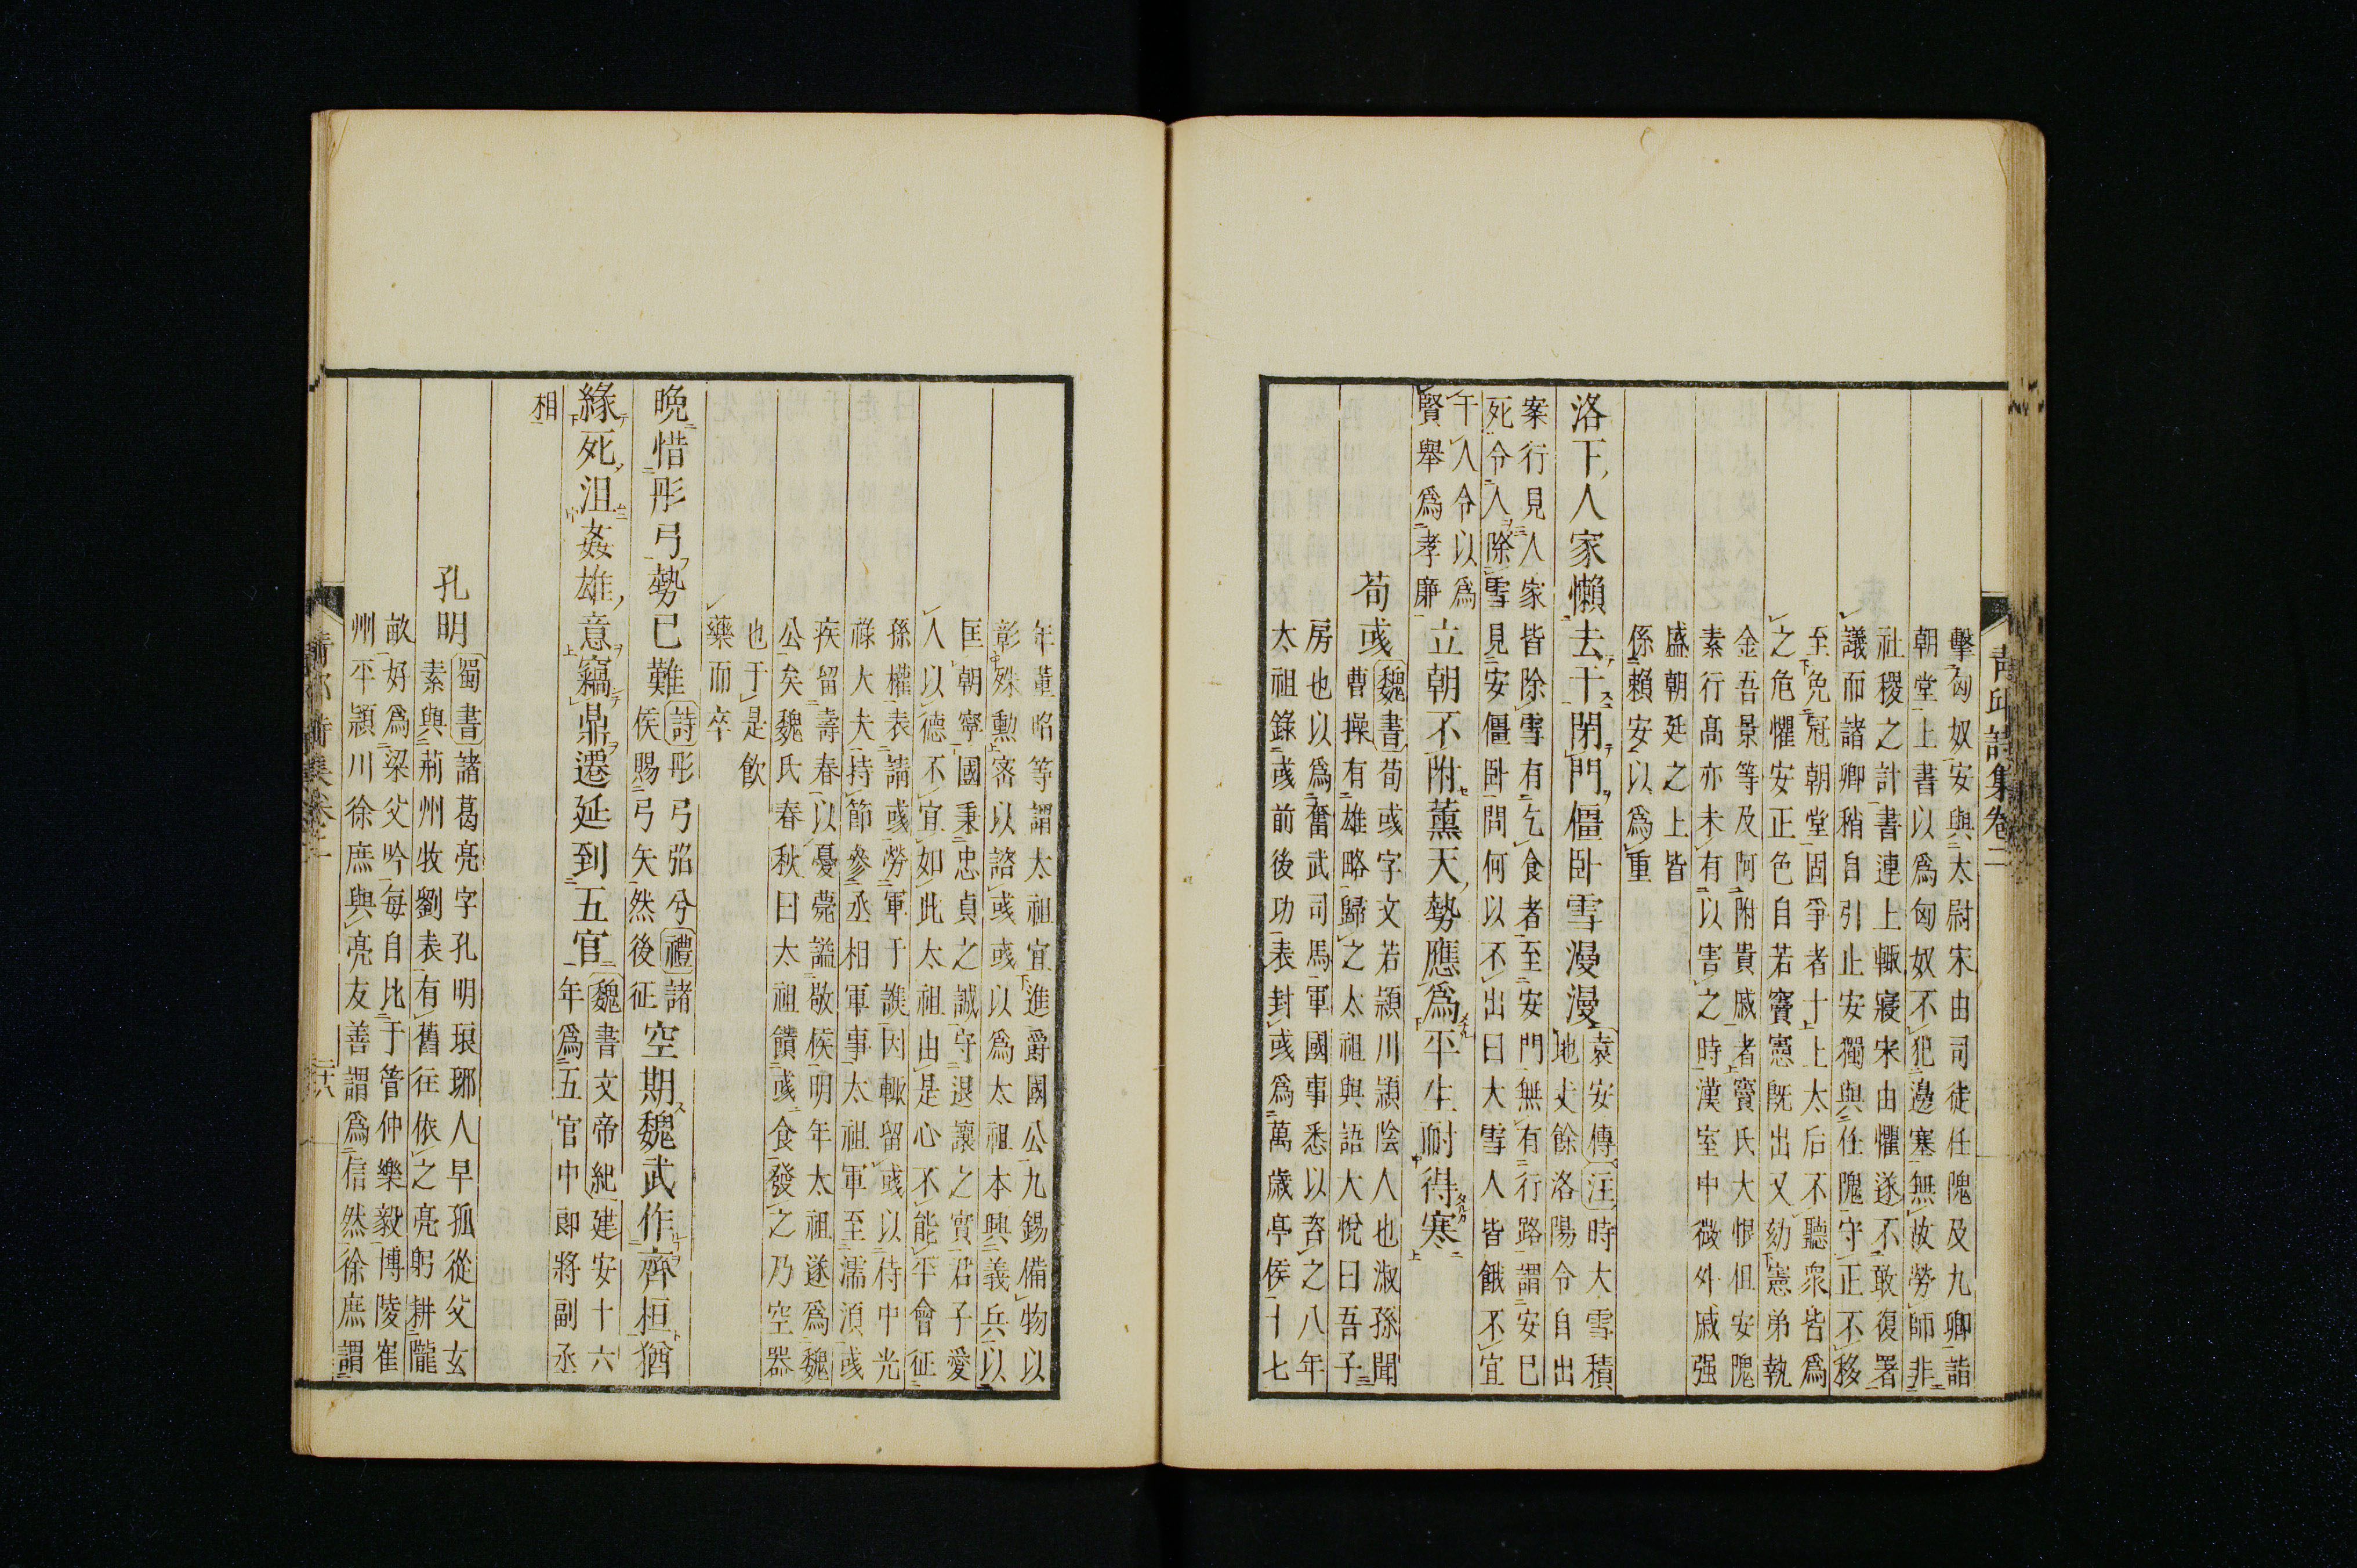 擊匈奴安與太尉宋由司徒任隗及九卿詣
朝堂上書以爲匈奴不犯邊塞無故勞師非
社稷之計書連上輙寢宋由懼遂不敢復署
議而諸卿稍自引止安獨與任隗守正不移
至免冠朝堂固爭者十上太后不聽衆皆爲
之危懼安正色自若竇憲既出又劾憲弟執
金吾景等及阿附貴戚者竇氏大恨但安隗
素行高亦未有以害之時漢室中微外戚强
盛朝廷之上皆
係賴安以爲重
洛下人家懶去干閉門僵卧雪漫漫
袁安傳注時大雪積
地丈餘洛陽令自出
案行見人家皆除雪有乞食者至安門無有行路謂安已
死令人除雪見安僵卧問何以不出曰大雪人皆餓不宜
干人令以爲
賢舉爲孝廉
立朝不附薰天勢應爲平生耐得寒
荀彧
魏書荀彧字文若潁川潁陰人也淑孫聞
曹操有雄略歸之太祖與語大悅曰吾子
房也以爲奮武司馬軍國事悉以咨之八年
太祖錄彧前後功表封彧爲萬歲亭侯十七
青邱詩集卷二
年董昭等謂太祖宜進爵國公九錫備物以
彰殊勳密以諮彧彧以爲太祖本興義兵以
匡朝寧國秉忠貞之誠守退讓之實君子愛
人以德不宜如此太祖由是心不能平會征
孫權表請彧勞軍于譙因輙留彧以侍中光
祿大夫持節參丞相軍事太祖軍至濡湏彧
疾留壽春以憂薨謚敬侯明年太祖遂爲魏
公矣魏氏春秋曰太祖饋彧食發之乃空器
也于是飲
藥而卒
晚惜彤弓勢已難
詩彤弓弨兮禮諸
侯賜弓矢然後征
空期魏武作齊桓猶
緣死沮姦雄意竊鼎遷延到五官
魏書文帝紀建安十六
年爲五官中郎將副丞
相
孔明
蜀書諸葛亮字孔明琅琊人早孤從父玄
素與荊州牧劉表有舊往依之亮躬耕隴
畝好爲梁父吟每自比于管仲樂毅博陵崔
州平潁川徐庶與亮友善謂爲信然徐庶謂
青邱詩集卷二
二十六